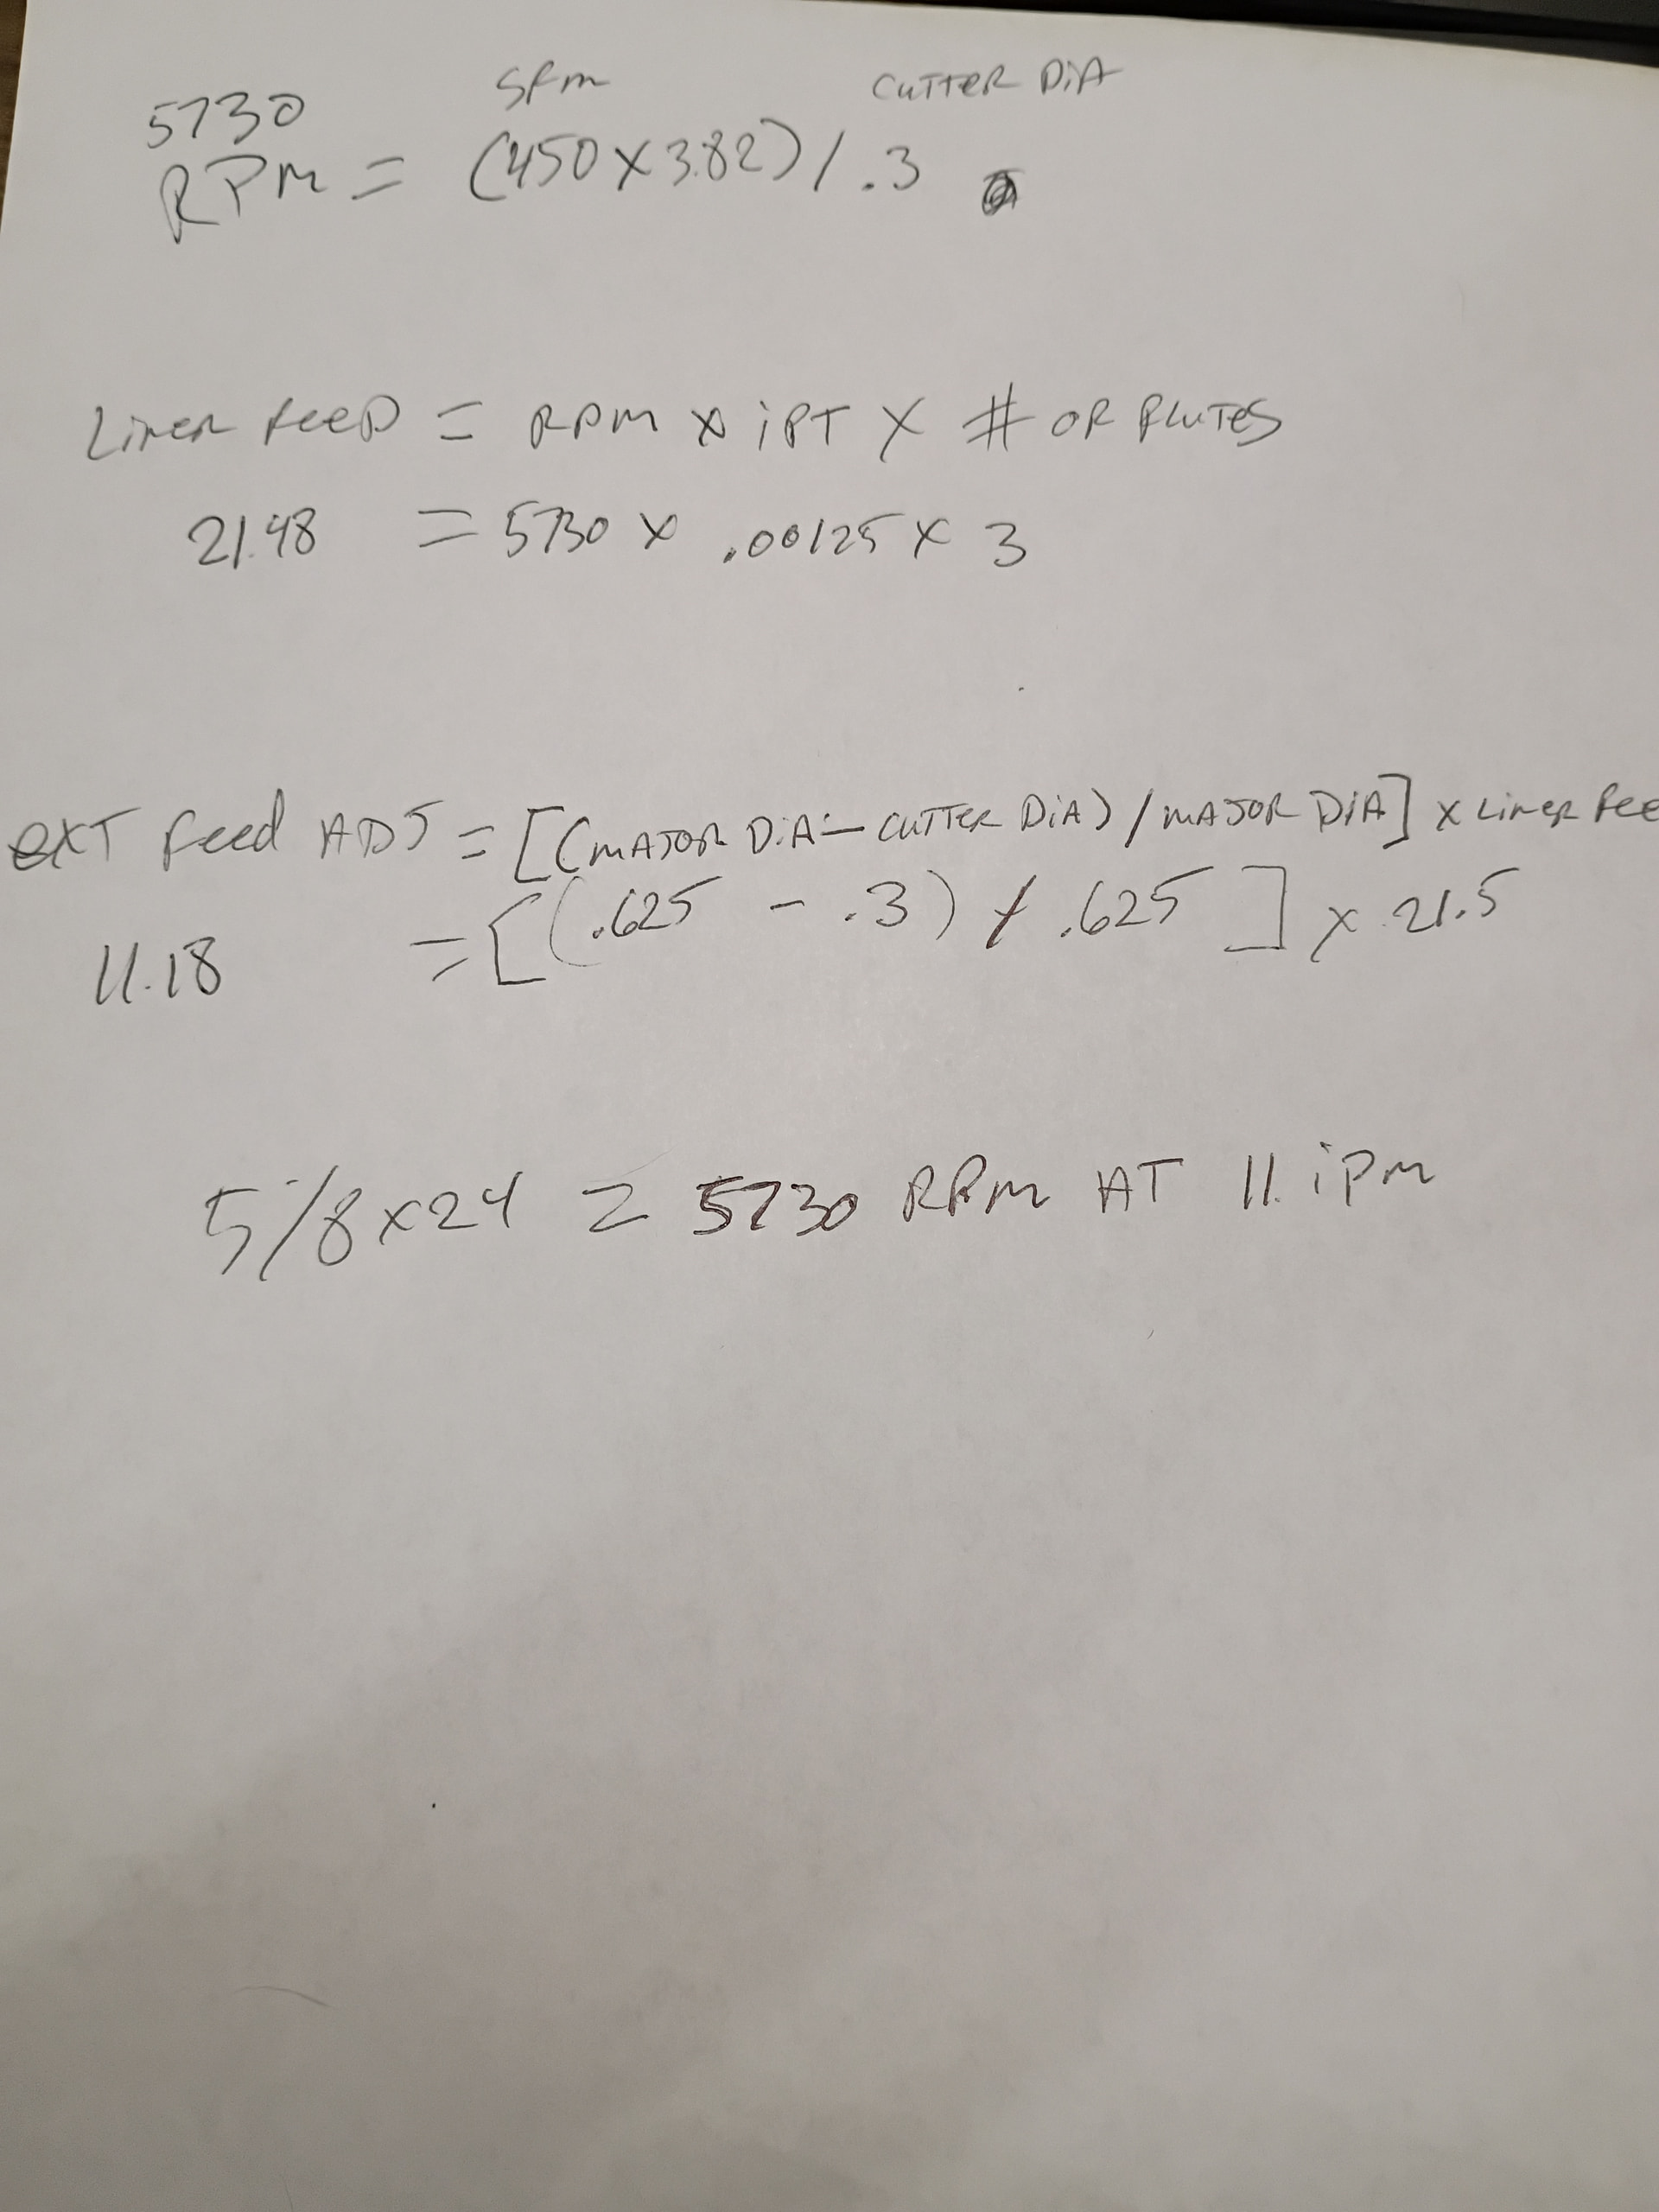 SFm CUTTER DiA
5730
RPm = (450 X 3.82) / .3
Liner feed = RPM X iPT X # OF FLUTES
21.48 = 5730 X .00125 X 3
EXT feed ADJ = [(MAJOR DiA - CUTTER DiA) / MAJOR DiA] X Liner fee
11.18 = [(.625 - .3) / .625] X 21.5
5/8 X 24 = 5730 RPm AT 11. iPm